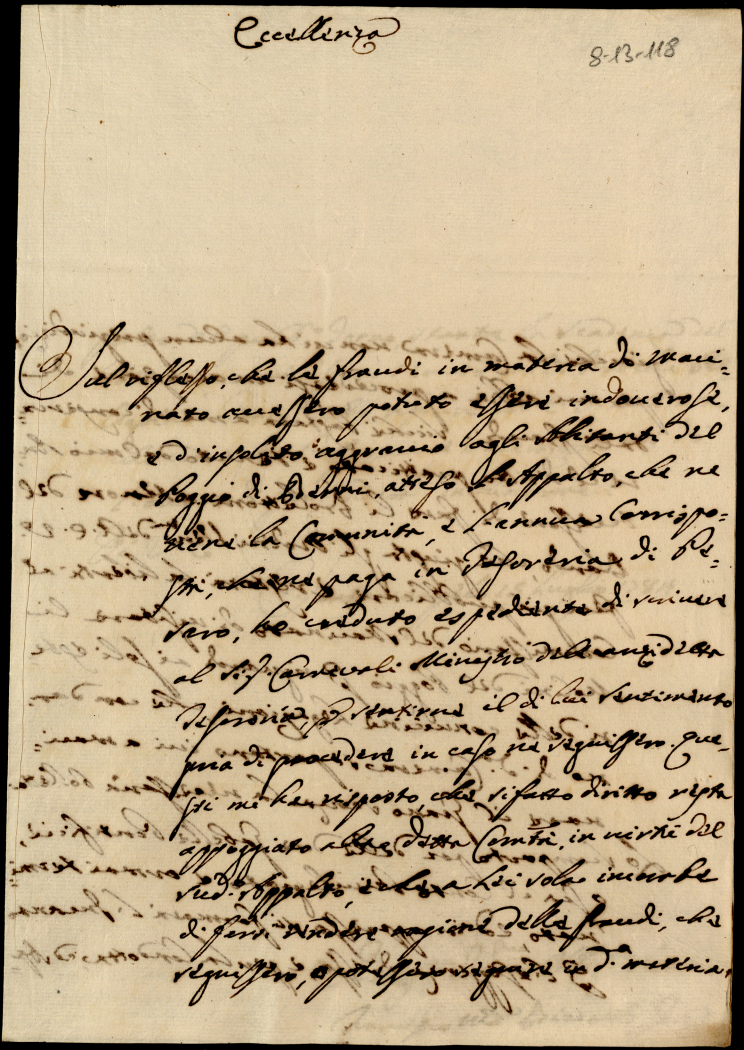 Eccellenza
8-13-118
Sul riflesso, che le fraudi in materia di maci-
nato avessero potuto essere indoverose,
e d'insolito aggravio agli Abbitanti del
Poggio di Berni, atteso l'Appalto, che ne
tiene la Comunità, e l'annua Corrispo-
sta, che ne paga in Tesoreria di Pe-
saro, ho creduto espediente di scrivere
al Sig. Carnevali Ministro dell'anzidetta
Tesoreria, per sentirne il di lui sentimento
pria di procedere in caso ne seguissero. Que-
sti mi ha risposto, che sifatto diritto resta
appoggiato alla detta Comtà, in virtù del
sud. Appalto, e che a Lei sola incombe
di farsi rendere ragione delle fraudi, che
seguissero, o potessero seguire in da materia.